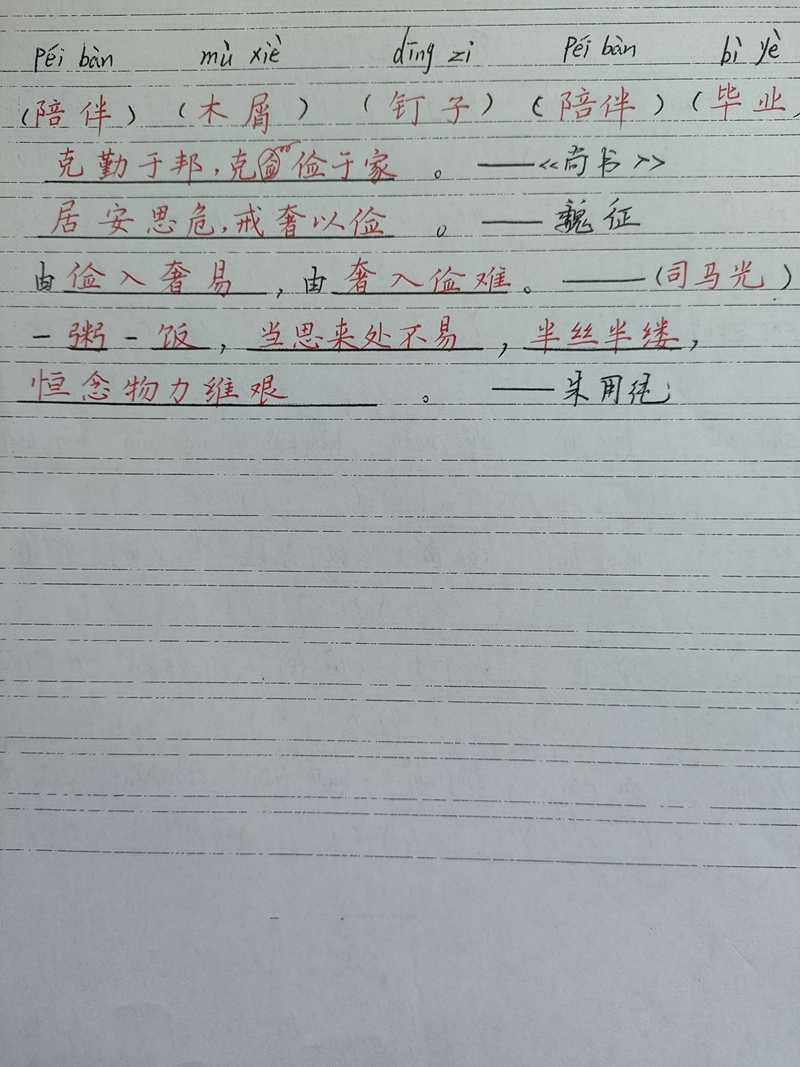 péi bàn mù xiè dīng zi péi bàn bì yè
(陪伴) (木屑) (钉子) (陪伴) (毕业)
克勤于邦,克俭于家。——《尚书》
居安思危,戒奢以俭。——魏征
由俭入奢易,由奢入俭难。——(司马光)
一粥一饭,当思来处不易,半丝半缕,
恒念物力维艰。——朱用纯